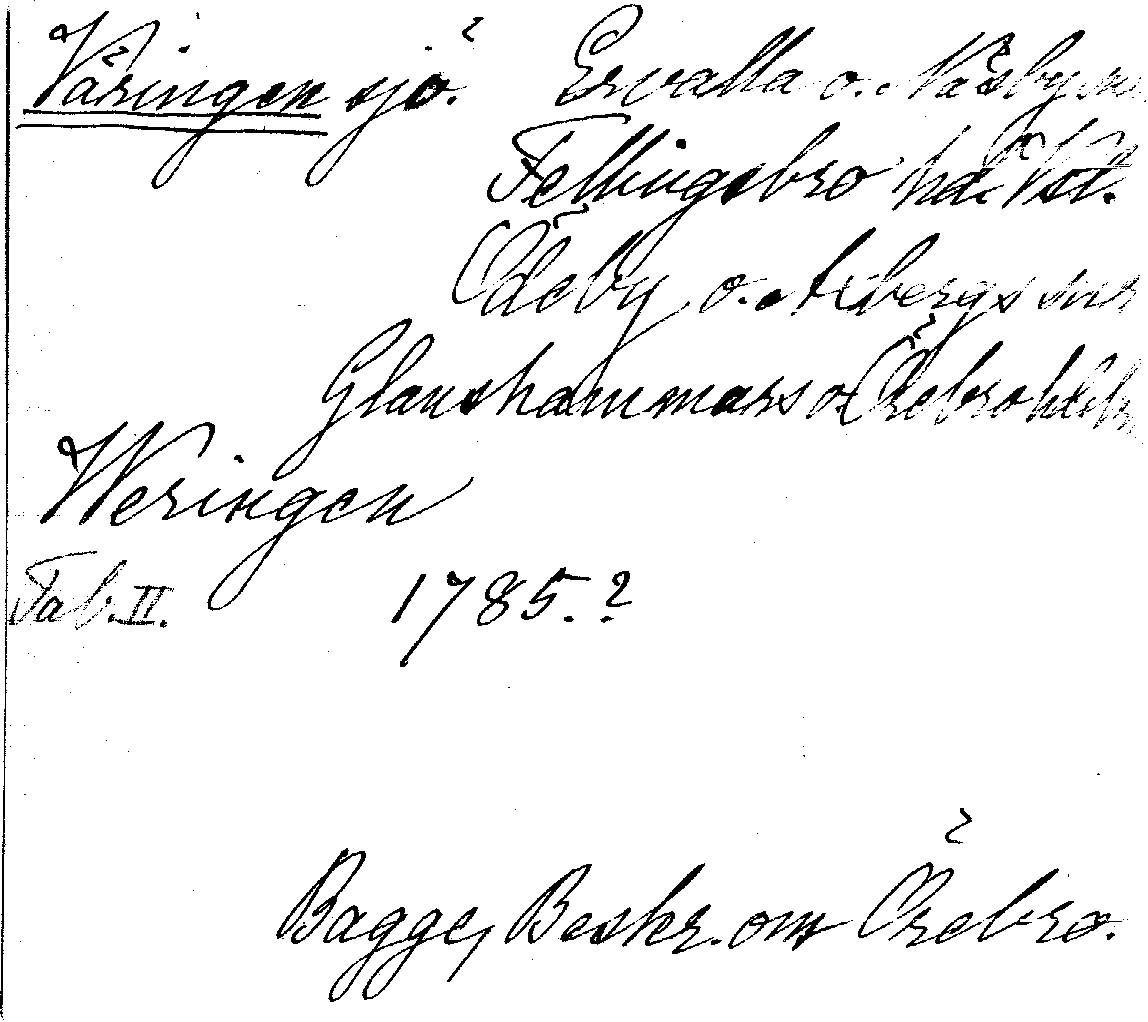 Väringen sjö. Ervalla o. Näsby snr
Fellingsbro hd. Vstl.
Ödeby o. Axbergs snr
Glanshammars o. Örebro hd.
Weringen
Tab. II. 1785.?
Bagge, Beskr. om Örebro.